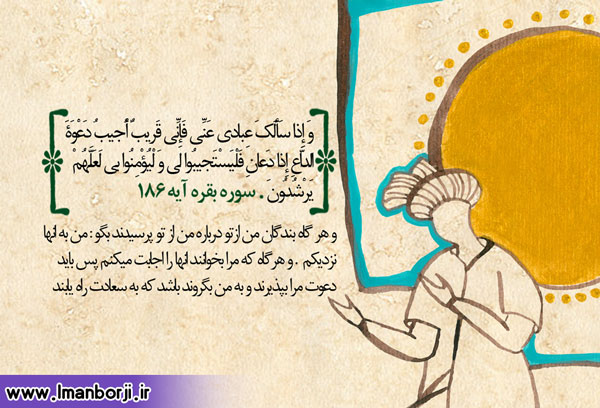 وَ إِذا سَأَلَکَ عِبادی عَنّی فَإِنّی قَریبٌ أُجیبُ دَعْوَةَ
الدّاعِ إِذا دَعانِ فَلْیَسْتَجیبُوا لی وَ لْیُؤْمِنُوا بی لَعَلَّهُمْ
یَرْشُدُونَ . سوره بقره آیه ۱۸۶
و هر گاه بندگان من از تو درباره من از تو پرسیدند بگو : من به انها
نزدیکم . و هر گاه که مرا بخوانند انها را اجابت میکنم پس باید
دعوت مرا بپذیرند و به من بگروند باشد که به سعادت راه یابند
www.Imanborji.ir